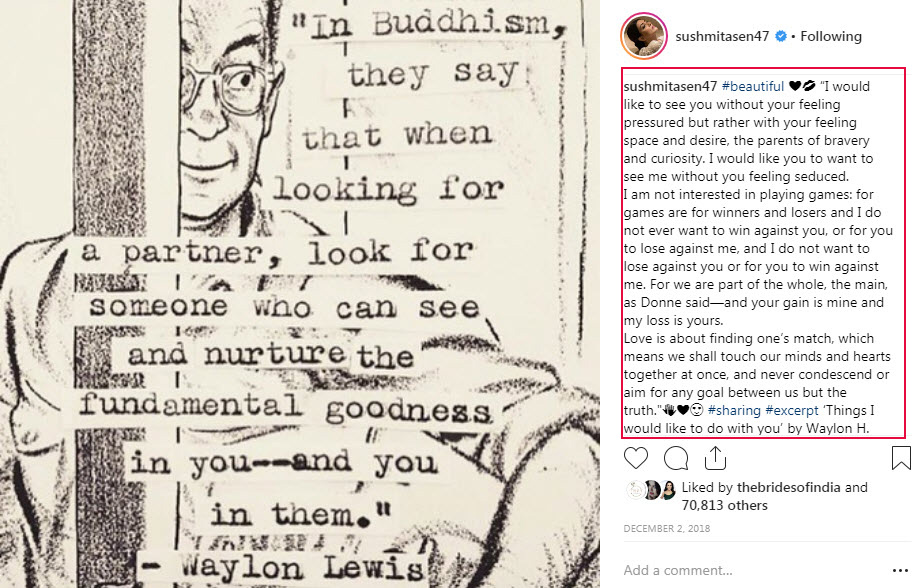 "In Buddhism,
they say
that when
looking for
a partner, look for
someone who can see
and nurture the
fundamental goodness
in you--and you
in them."
- Waylon Lewis
sushmitasen47 • Following
sushmitasen47 #beautiful ♥💋 "I would
like to see you without your feeling
pressured but rather with your feeling
space and desire, the parents of bravery
and curiosity. I would like you to want to
see me without you feeling seduced.
I am not interested in playing games: for
games are for winners and losers and I do
not ever want to win against you, or for you
to lose against me, and I do not want to
lose against you or for you to win against
me. For we are part of the whole, the main,
as Donne said—and your gain is mine and
my loss is yours.
Love is about finding one's match, which
means we shall touch our minds and hearts
together at once, and never condescend or
aim for any goal between us but the
truth."👋♥😍 #sharing #excerpt 'Things I
would like to do with you' by Waylon H.
Liked by thebridesofindia and
70,813 others
DECEMBER 2, 2018
Add a comment...